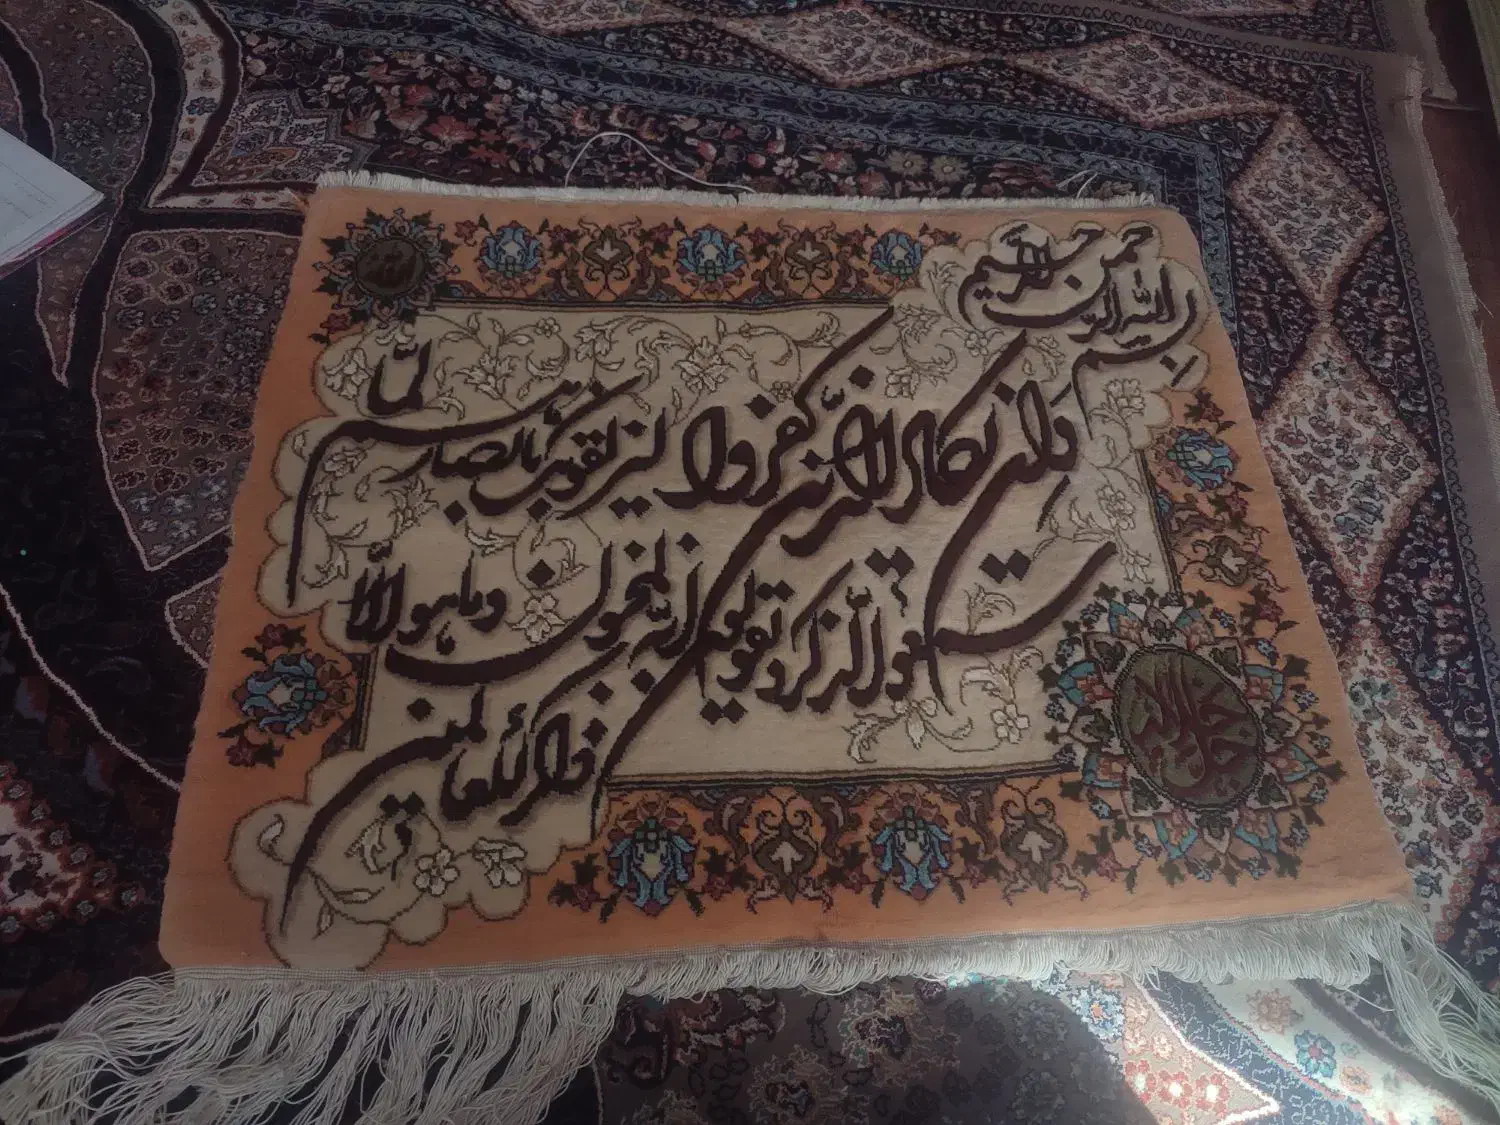 بِسم اللّه الرّحمن الرّحیم
وَان یکاد الّذین کفروا لیزلقونک بابصارهم لمّا
سمعوا الذکر و یقولون انّه لمجنون و ما هو الّا
ذکر للعالمین
جل جلاله